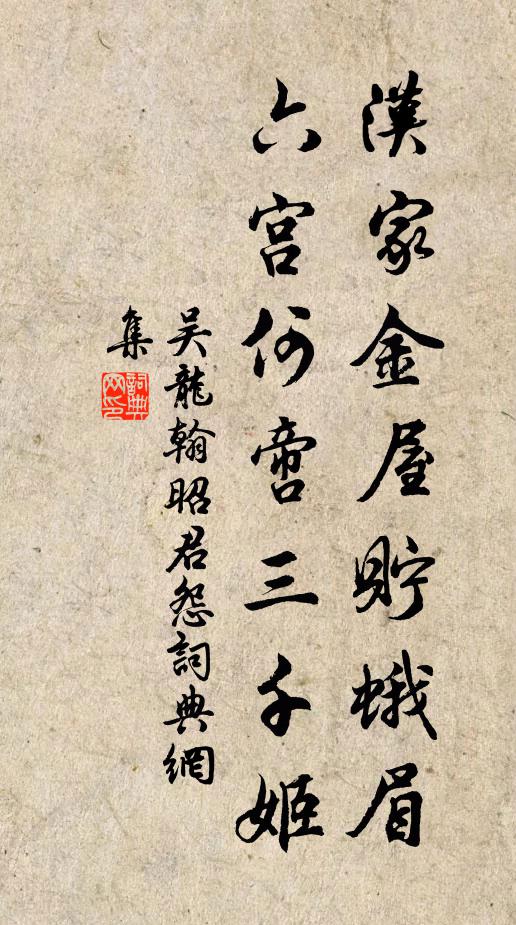 漢家金屋貯蛾眉
六宮何啻三千姬
吳龍翰昭君怨詞典網
集
詞典
網印